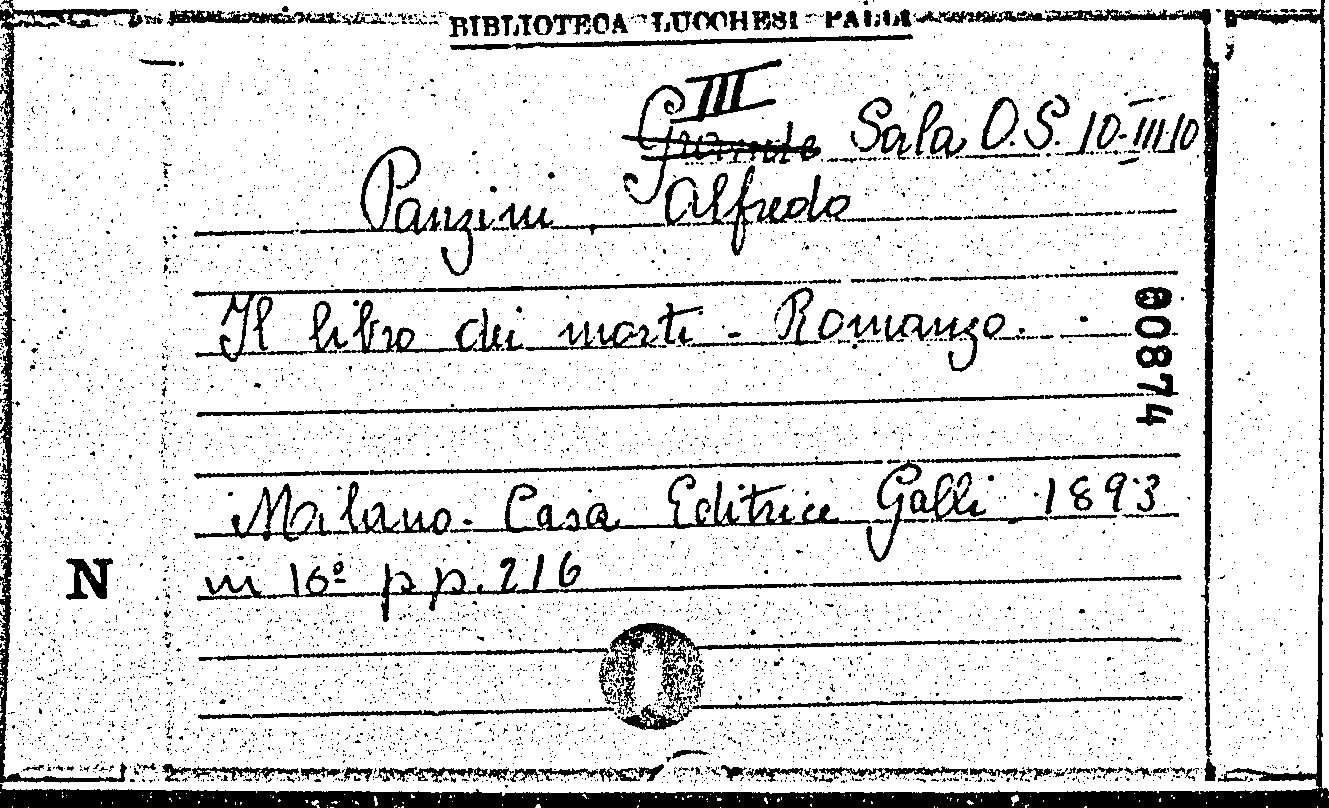 BIBLIOTECA LUCCHESI PALLI
III
Grande Sala O.S. 10-III-10
Panzini, Alfredo
Il libro dei morti - Romanzo.
00874
Milano. Casa Editrice Galli 1893
N
in 16º pp. 216